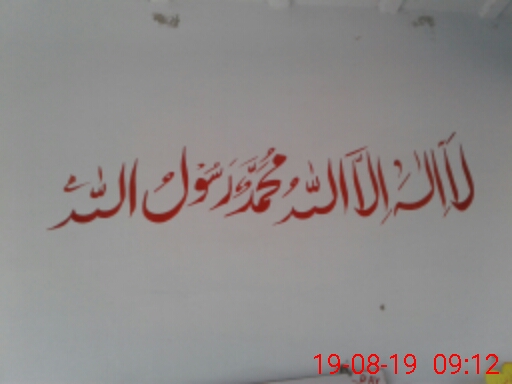 لَآ اِلٰهَ اِلَّا اللّٰهُ مُحَمَّدٌ رَسُوْلُ اللّٰهِ
DAY
19-08-19 09:12